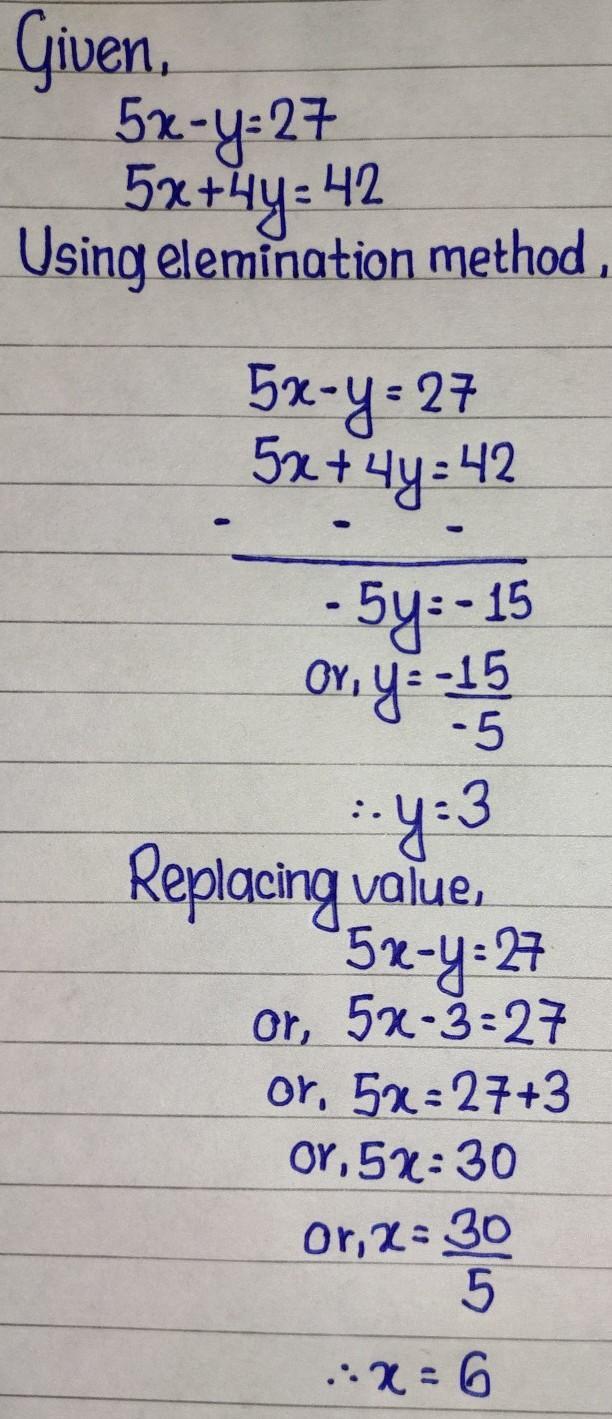 Given,
5x-y=27
5x+4y=42
Using elemination method,
5x-y=27
5x+4y=42
- - -
-5y=-15
or, y=-15
-5
∴y=3
Replacing value,
5x-y=27
or, 5x-3=27
or, 5x=27+3
or, 5x=30
or, x=30
5
∴x=6